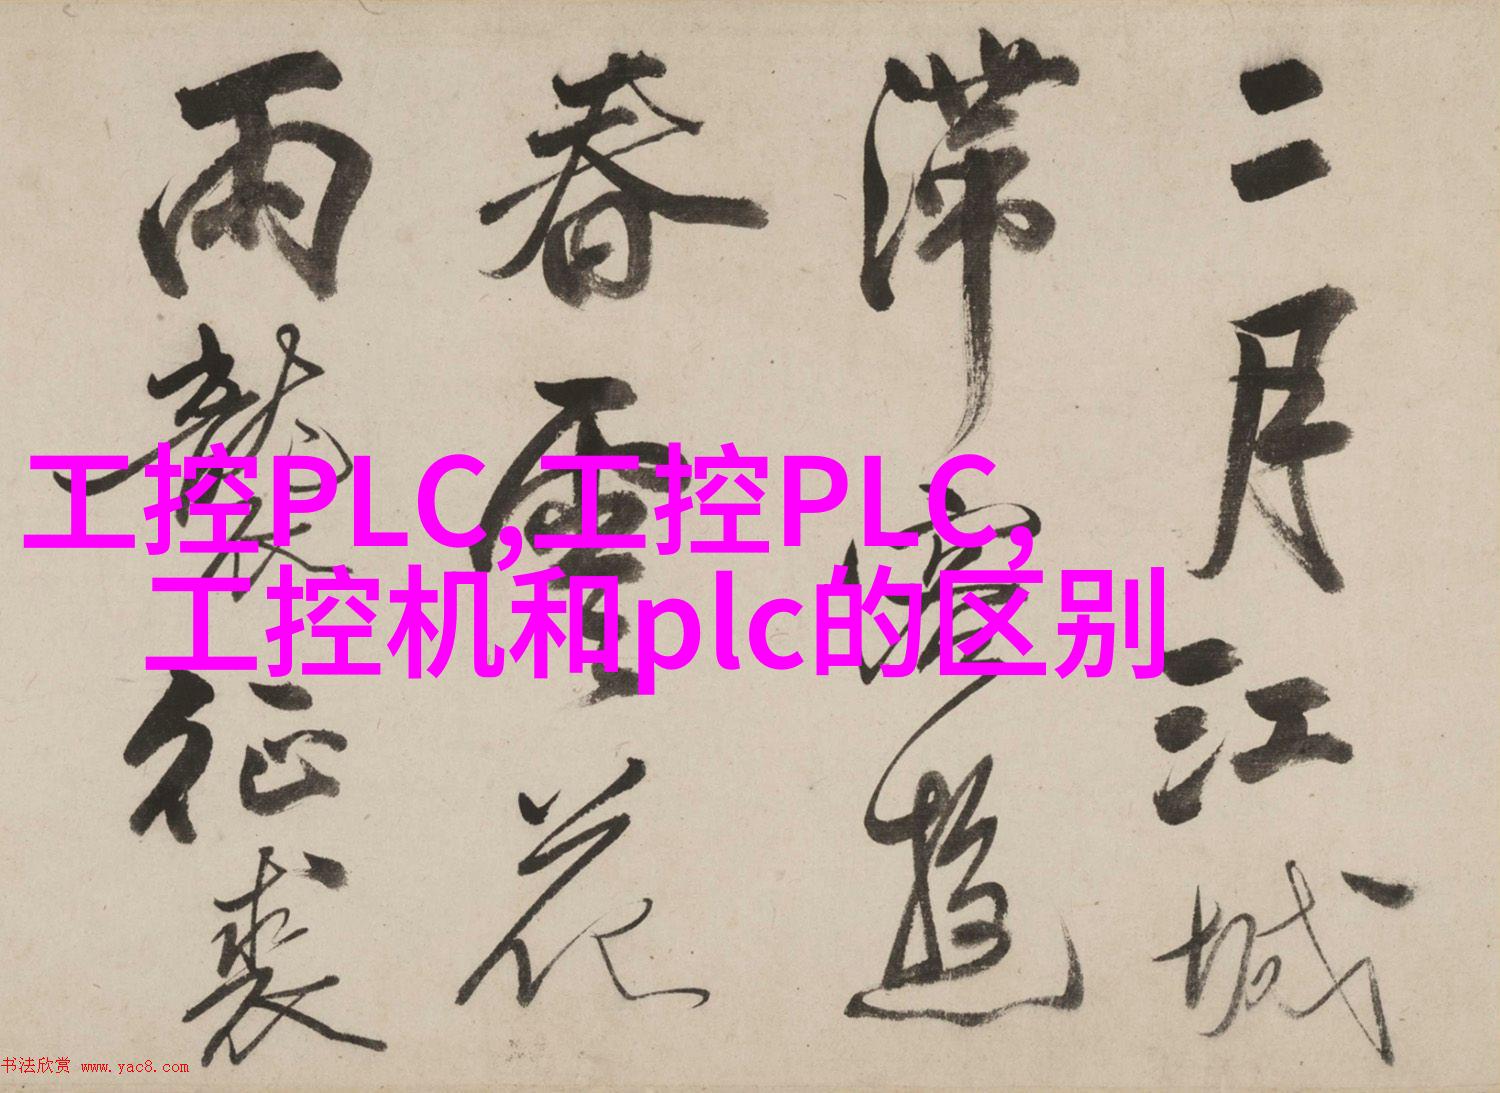 二月江城
滞客游
春云花
雨袭征裘
工控PLC,工控PLC,
工控机和plc的区别
书法欣赏 www.yac8.com